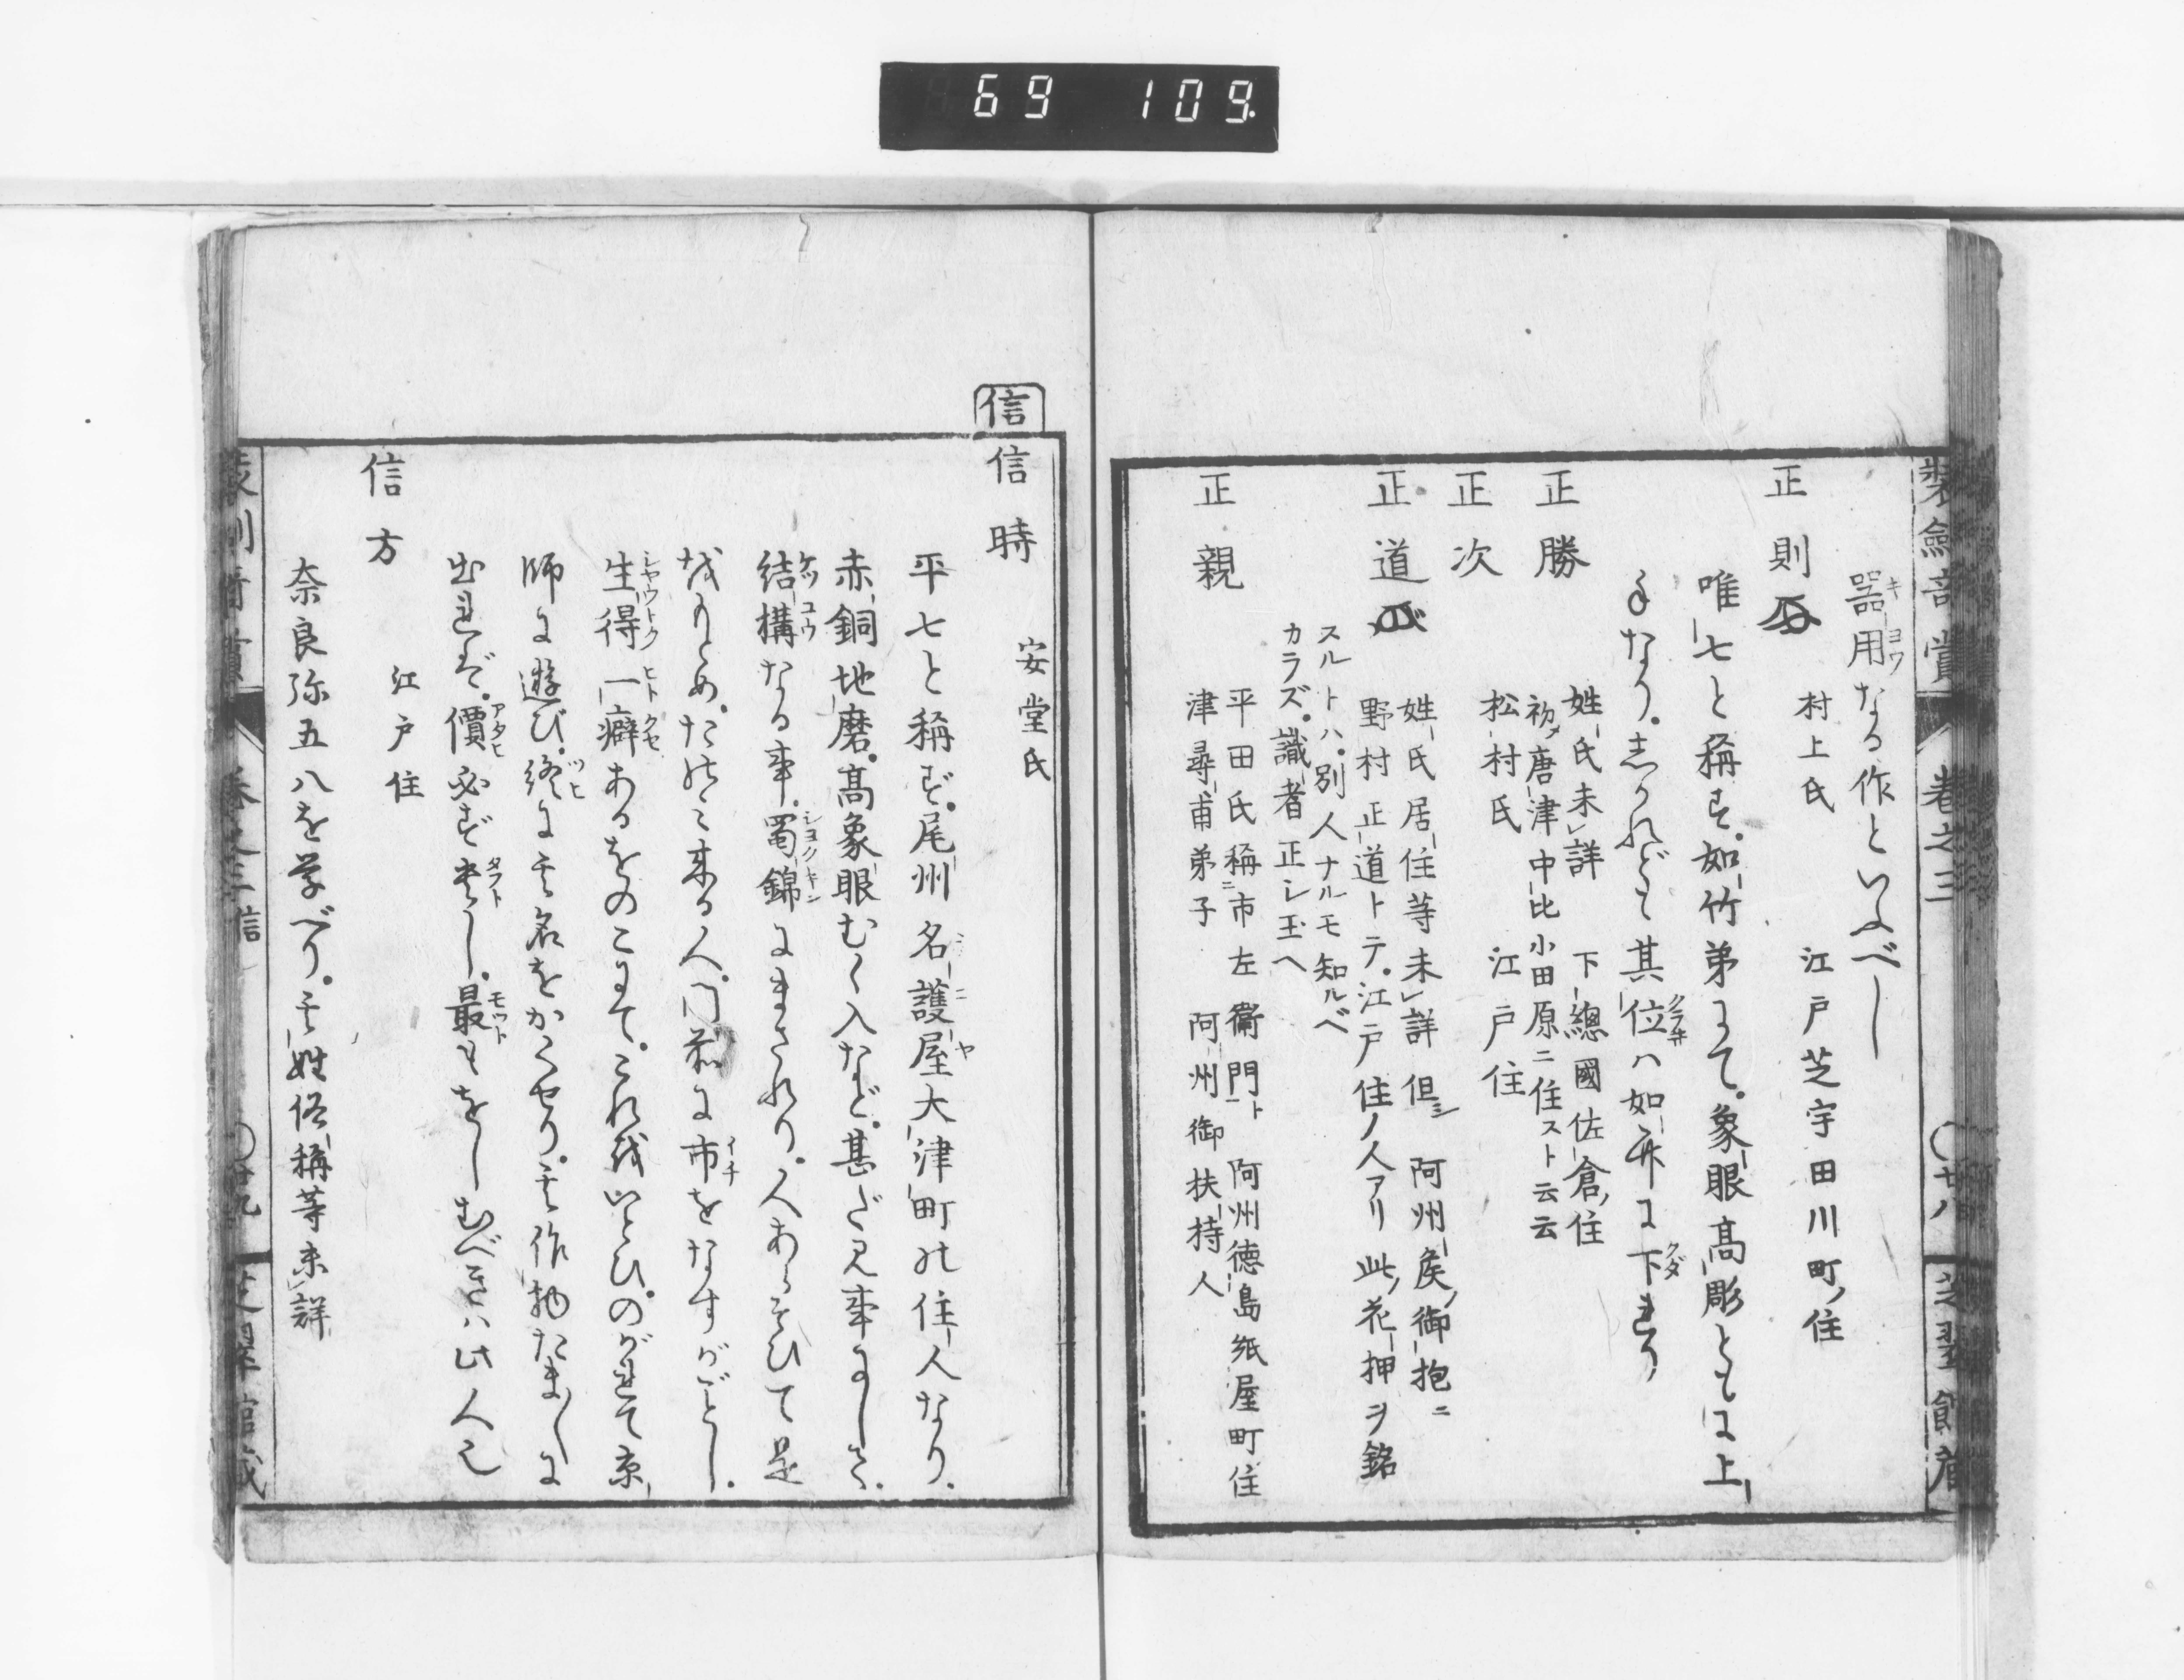 69 109
装劔竒賞
卷之三
〇廿八
芝翠館蔵
器用なる作といふべし
正則 村上氏 江戸芝宇田川町ノ住
唯七と稱す。如竹弟にて。象眼高彫ともに上
手なり。志かれども其位ハ如竹に下れり
正勝 姓氏未レ詳 下總國佐倉ノ住
初メ唐津中比小田原ニ住スト云云
正次 松村氏 江戸住
正道 姓氏居住等未レ詳但シ 阿州侯ノ御抱ニ
野村正道トテ。江戸住ノ人アリ 此ノ花押ヲ銘
スルトハ。別人ナルモ知ルベ
カラズ。識者正シ玉ヘ
正親 平田氏稱ニ市左衞門ト 阿州德島紙屋町住
津尋甫弟子 阿州御扶持人
信
信時 安堂氏
平七と稱す。尾州名護屋大津町の住人なり。
赤銅地磨。高象眼むく入など。甚だ見事にして。
結構なる事。蜀錦にまされり。人あらそひて是
をもとめ。たのミ来る人。門前に市をなすがごとし。
生得一癖あるをのこにて。これをいとひ。のがれて京
師に遊び。終に其名をかくせり。其作物たま〱に
出れバ。價必ず貴し。最もをしむべきハ此人也
信方 江戸住
奈良弥五八を学べり。其姓俗稱等未レ詳
卷之三 信
〇廿九